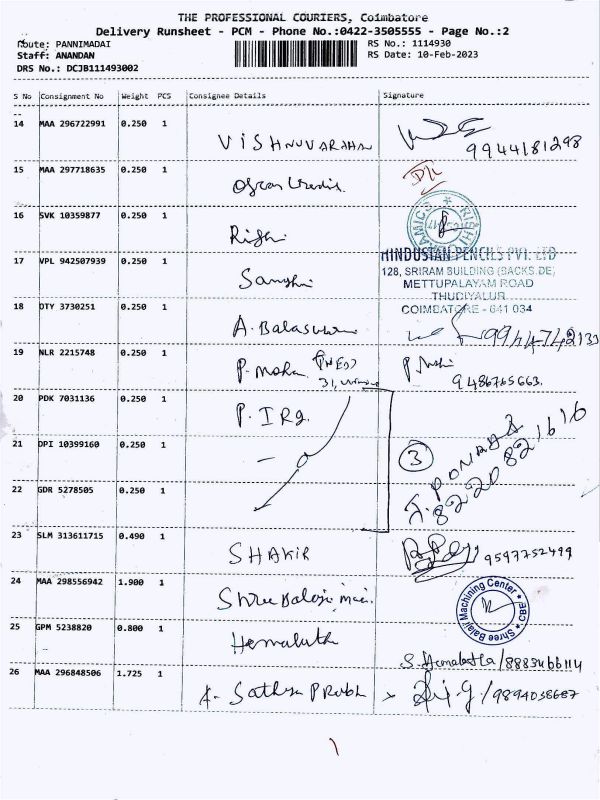 THE PROFESSIONAL COURIERS, Coimbatore
Delivery Runsheet - PCM - Phone No.:0422-3505555 - Page No.:2
Route: PANNIMADAI
RS No.: 1114930
Staff: ANANDAN
RS Date: 10-Feb-2023
DRS No.: DCJB111493002
S No Consignment No Weight PCS Consignee Details Signature
14 MAA 296722991 0.250 1
VISHNUVARDHAN 9944181298
15 MAA 297718635 0.250 1
16 SVK 10359877 0.250 1
17 VPL 942507939 0.250 1
HINDUSTAN PENCILS PVT. LTD
128, SRIRAM BUILDING (BACKS.DE)
METTUPALAYAM ROAD
THUDIYALUR
COIMBATORE - 641 034
18 DTY 3730251 0.250 1
A. 9944742133
19 NLR 2215748 0.250 1
P. 9486765663.
20 PDK 7031136 0.250 1
P. IRg.
21 DPI 10399160 0.250 1
3
8220821616
22 GDR 5278505 0.250 1
23 SLM 313611715 0.490 1
SHAKIR 9597752499
24 MAA 298556942 1.900 1
Shree Balaji
Shree Balaji Machining Center CBE
25 GPM 5238820 0.800 1
Hemalatha
S. Hemalatha/8883466114
26 MAA 296848506 1.725 1
Sathya Prabh /9894038687